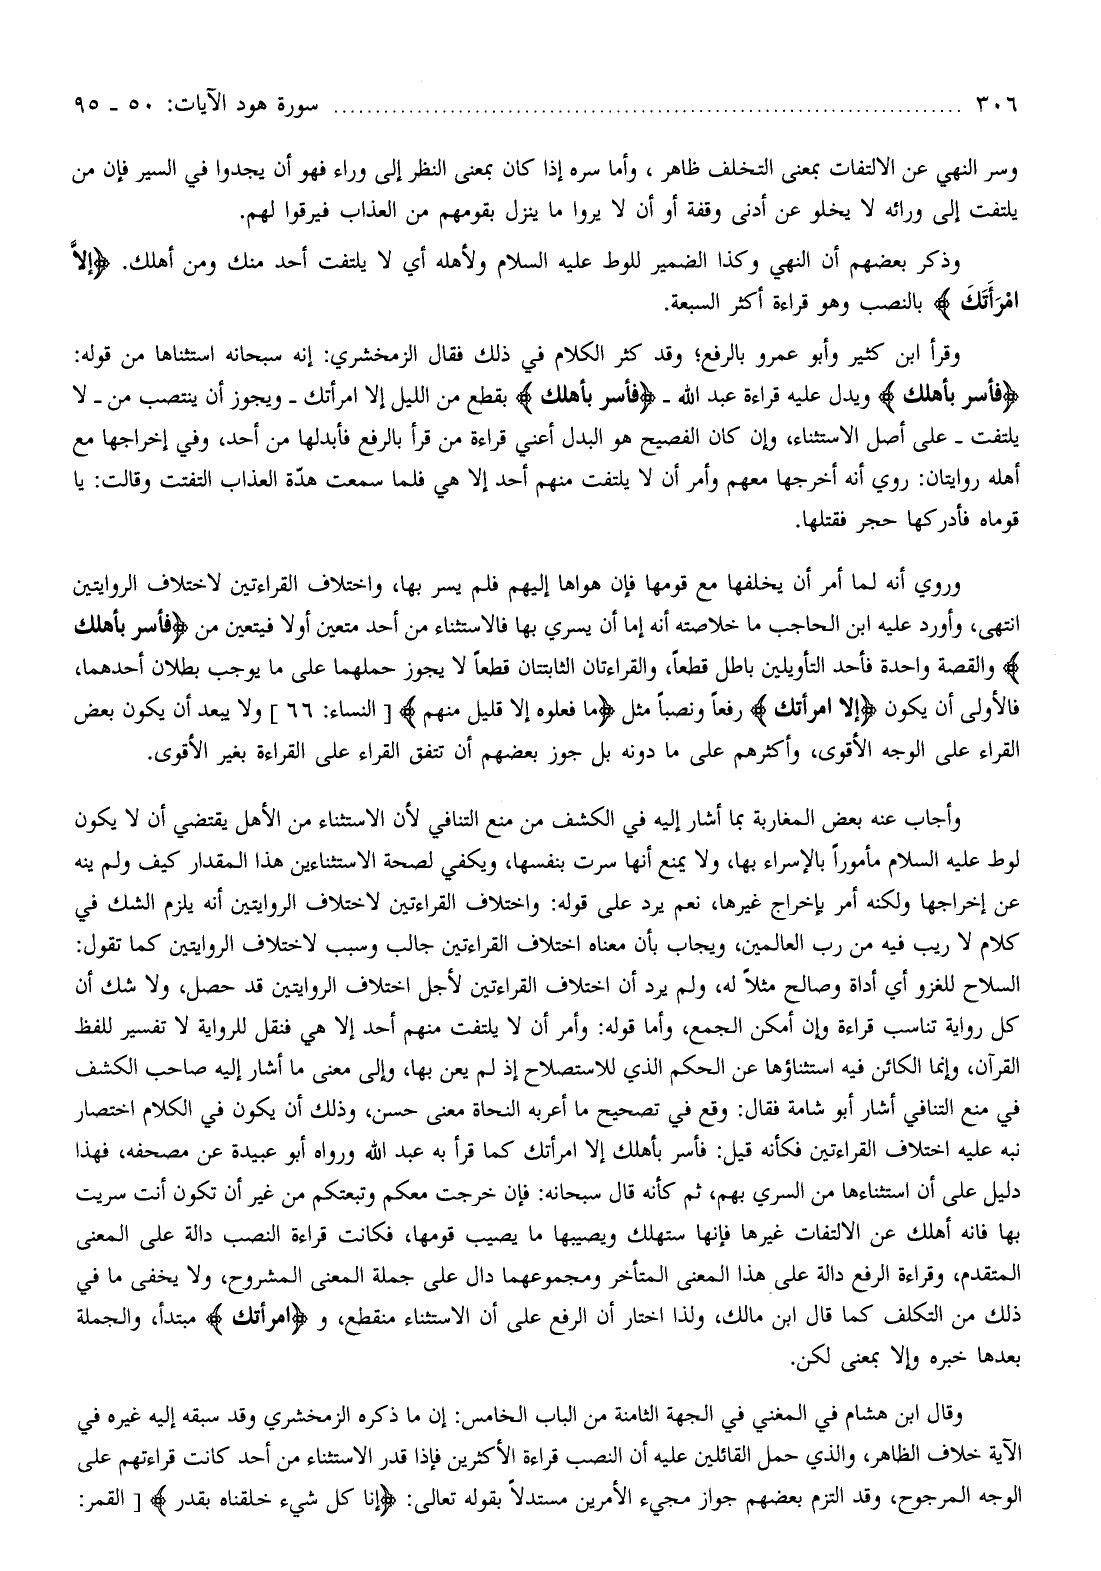 ٣٠٦ ........................................................................ سورة هود الآيات: ٥٠ ـ ٩٥
وسر النهي عن الالتفات بمعنى التخلف ظاهر ، وأما سره إذا كان بمعنى النظر إلى وراء فهو أن يجدوا في السير فإن من
يلتفت إلى ورائه لا يخلو عن أدنى وقفة أو أن لا يروا ما ينزل بقومهم من العذاب فيرقوا لهم.
وذكر بعضهم أن النهي وكذا الضمير للوط عليه السلام ولأهله أي لا يلتفت أحد منك ومن أهلك. ﴿إلاَّ
امْرَأَتَكَ ﴾ بالنصب وهو قراءة أكثر السبعة.
وقرأ ابن كثير وأبو عمرو بالرفع؛ وقد كثر الكلام في ذلك فقال الزمخشري: إنه سبحانه استثناها من قوله:
﴿فأسر بأهلك ﴾ ويدل عليه قراءة عبد الله ـ ﴿فأسر بأهلك ﴾ بقطع من الليل إلا امرأتك ـ ويجوز أن ينتصب من ـ لا
يلتفت ـ على أصل الاستثناء، وإن كان الفصيح هو البدل أعني قراءة من قرأ بالرفع فأبدلها من أحد، وفي إخراجها مع
أهله روايتان: روي أنه أخرجها معهم وأمر أن لا يلتفت منهم أحد إلا هي فلما سمعت هدّة العذاب التفتت وقالت: يا
قوماه فأدركها حجر فقتلها.
وروي أنه لما أمر أن يخلفها مع قومها فإن هواها إليهم فلم يسر بها، واختلاف القراءتين لاختلاف الروايتين
انتهى، وأورد عليه ابن الحاجب ما خلاصته أنه إما أن يسري بها فالاستثناء من أحد متعين أولا فيتعين من ﴿فأسر بأهلك
﴾ والقصة واحدة فأحد التأويلين باطل قطعاً، والقراءتان الثابتتان قطعاً لا يجوز حملهما على ما يوجب بطلان أحدهما،
فالأولى أن يكون ﴿إلا امرأتك ﴾ رفعاً ونصباً مثل ﴿ما فعلوه إلا قليل منهم ﴾ [ النساء: ٦٦ ] ولا يبعد أن يكون بعض
القراء على الوجه الأقوى، وأكثرهم على ما دونه بل جوز بعضهم أن تتفق القراء على القراءة بغير الأقوى.
وأجاب عنه بعض المغاربة بما أشار إليه في الكشف من منع التنافي لأن الاستثناء من الأهل يقتضي أن لا يكون
لوط عليه السلام مأموراً بالإسراء بها، ولا يمنع أنها سرت بنفسها، ويكفي لصحة الاستثناءين هذا المقدار كيف ولم ينه
عن إخراجها ولكنه أمر بإخراج غيرها، نعم يرد على قوله: واختلاف القراءتين لاختلاف الروايتين أنه يلزم الشك في
كلام لا ريب فيه من رب العالمين، ويجاب بأن معناه اختلاف القراءتين جالب وسبب لاختلاف الروايتين كما تقول:
السلاح للغزو أي أداة وصالح مثلاً له، ولم يرد أن اختلاف القراءتين لأجل اختلاف الروايتين قد حصل، ولا شك أن
كل رواية تناسب قراءة وإن أمكن الجمع، وأما قوله: وأمر أن لا يلتفت منهم أحد إلا هي فنقل للرواية لا تفسير للفظ
القرآن، وإنما الكائن فيه استثناؤها عن الحكم الذي للاستصلاح إذ لم يعن بها، وإلى معنى ما أشار إليه صاحب الكشف
في منع التنافي أشار أبو شامة فقال: وقع في تصحيح ما أعربه النحاة معنى حسن، وذلك أن يكون في الكلام اختصار
نبه عليه اختلاف القراءتين فكأنه قيل: فأسر بأهلك إلا امرأتك كما قرأ به عبد الله ورواه أبو عبيدة عن مصحفه، فهذا
دليل على أن استثناءها من السري بهم، ثم كأنه قال سبحانه: فإن خرجت معكم وتبعتكم من غير أن تكون أنت سريت
بها فانه أهلك عن الالتفات غيرها فإنها ستهلك ويصيبها ما يصيب قومها، فكانت قراءة النصب دالة على المعنى
المتقدم، وقراءة الرفع دالة على هذا المعنى المتأخر ومجموعهما دال على جملة المعنى المشروح، ولا يخفى ما في
ذلك من التكلف كما قال ابن مالك، ولذا اختار أن الرفع على أن الاستثناء منقطع، و ﴿امرأتك ﴾ مبتدأ، والجملة
بعدها خبره وإلا بمعنى لكن.
وقال ابن هشام في المغني في الجهة الثامنة من الباب الخامس: إن ما ذكره الزمخشري وقد سبقه إليه غيره في
الآية خلاف الظاهر، والذي حمل القائلين عليه أن النصب قراءة الأكثرين فإذا قدر الاستثناء من أحد كانت قراءتهم على
الوجه المرجوح، وقد التزم بعضهم جواز مجيء الأمرين مستدلاً بقوله تعالى: ﴿إنا كل شيء خلقناه بقدر ﴾ [ القمر: